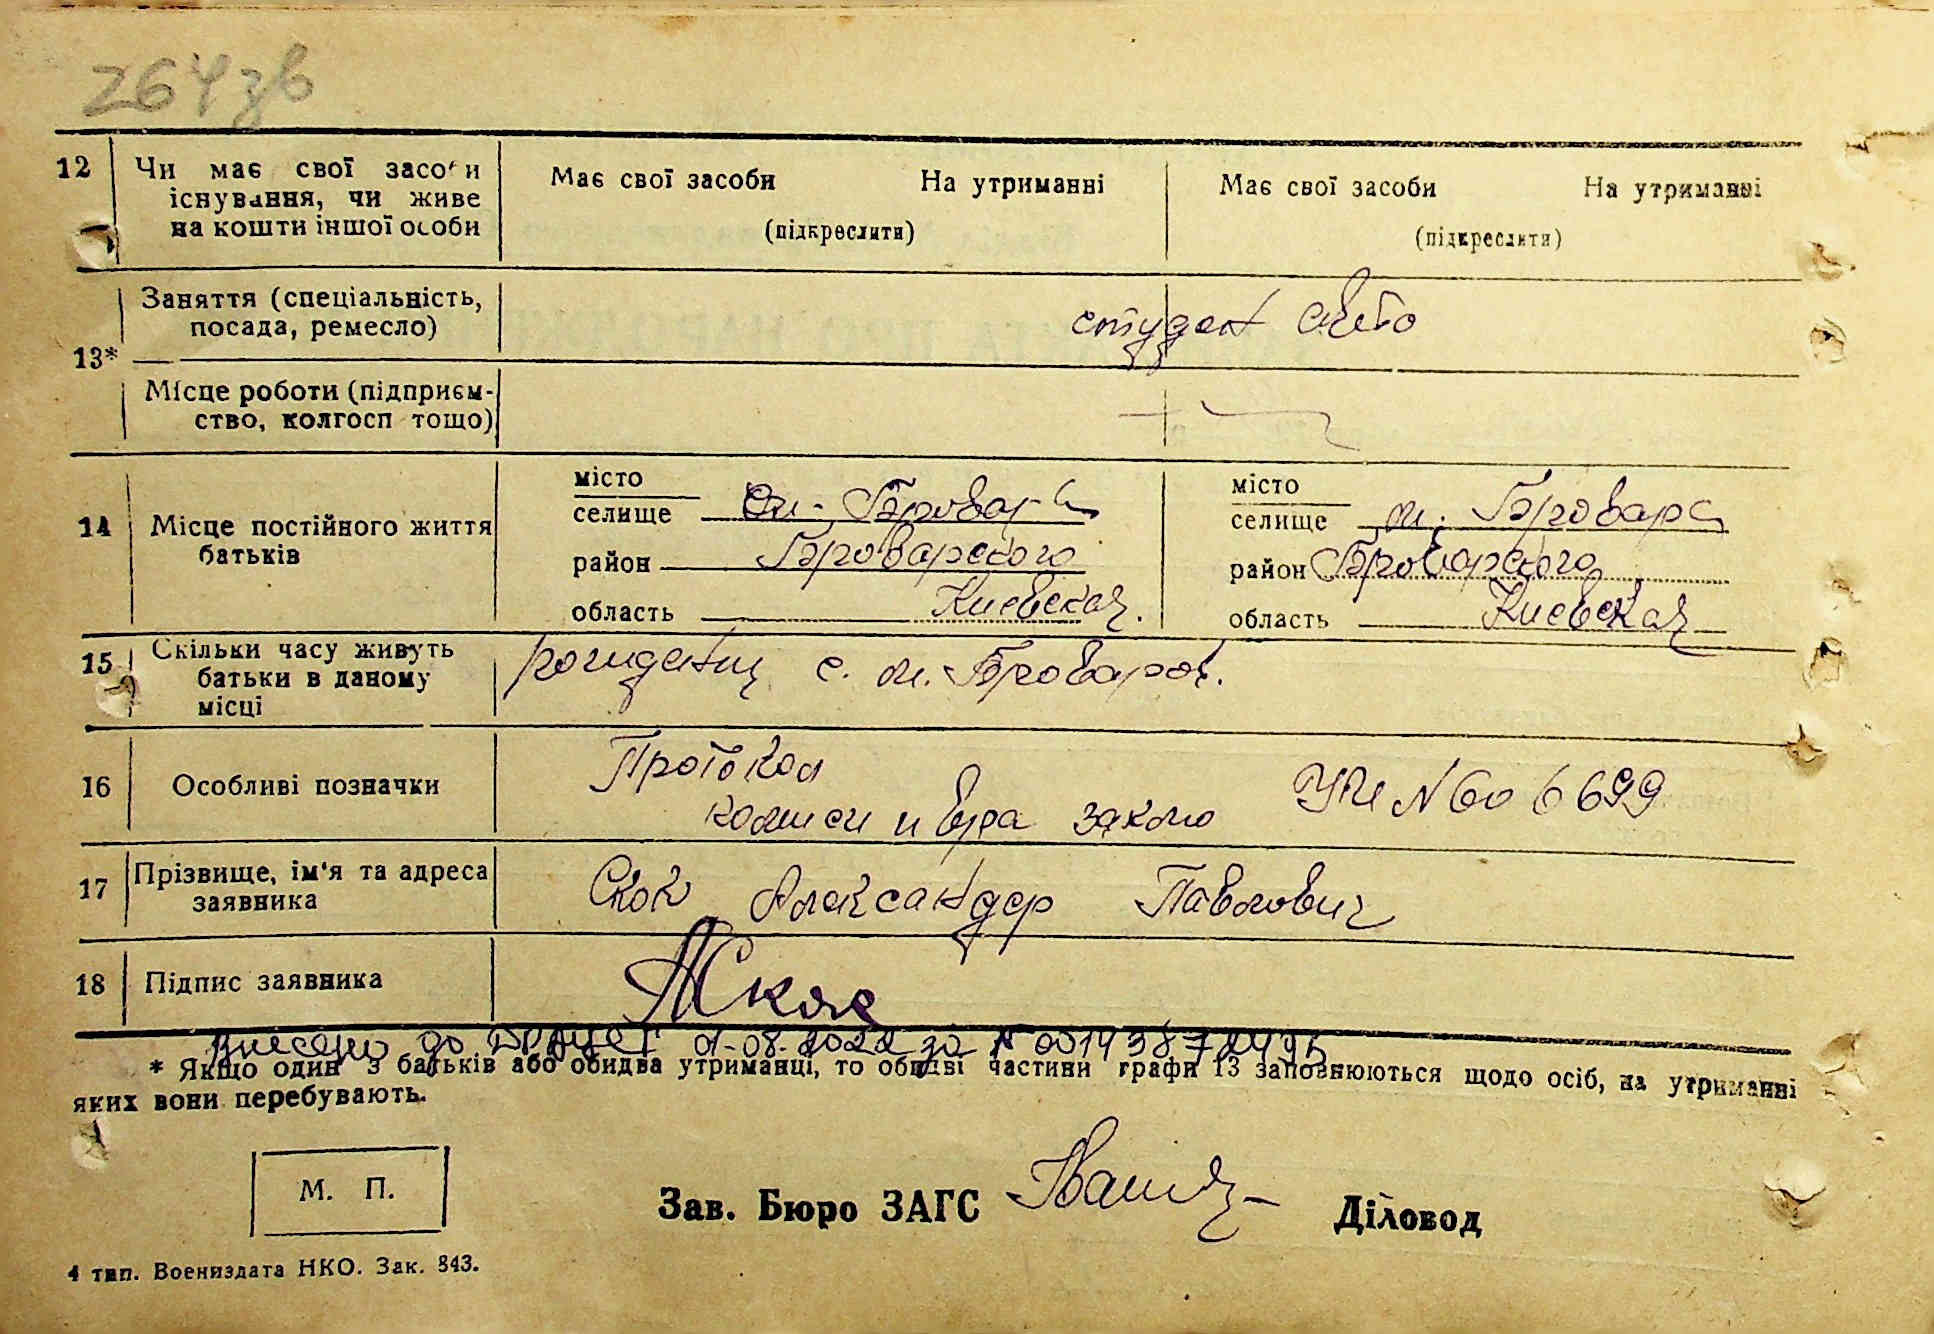 264зв
12 Чи має свої засоби Має свої засоби На утриманні Має свої засоби На утриманні
існування, чи живе
на кошти іншої особи (підкреслити) (підкреслити)
Заняття (спеціальність,
посада, ремесло) студент
13*
Місце роботи (підприєм-
ство, колгосп тощо)
місто місто
селище м. Бровары селище м. Бровары
14 Місце постійного життя
батьків район Броварского район Броварского
область Киевская. область Киевская
15 Скільки часу живуть
батьки в даному
місці с. м. Броваров.
16 Особливі позначки Протокол
комиси и врa УЧИ № 606699
17 Прізвище, ім'я та адреса
заявника Скок Александер Павлович
18 Підпис заявника АСкок
Внесено до ДРАЦСГ 01-08-2022 за № 00143872495
* Якщо один з батьків або обидва утриманці, то обидві частини графи 13 заповнюються щодо осіб, на утриманні
яких вони перебувають.
М. П.
Зав. Бюро ЗАГС Діловод
4 тип. Воениздата НКО. Зак. 843.